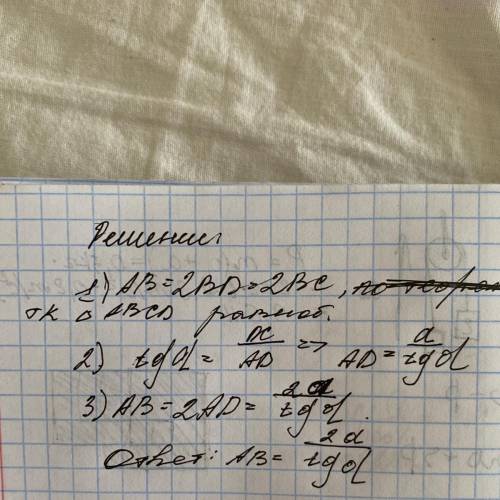 Решение:
1) AB = 2BD = 2BC,
тк △ ABCD равноб.
2) tg α = DC/AD => AD = a/tg α
3) AB = 2AD = 2a/tg α.
Ответ: AB = 2a/tg α